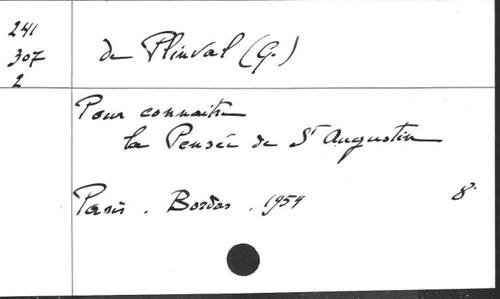 241
307
2
de Plinval (G.)
Pour connaitre
la Pensée de St Augustin
Paris. Bordas. 1954 8°